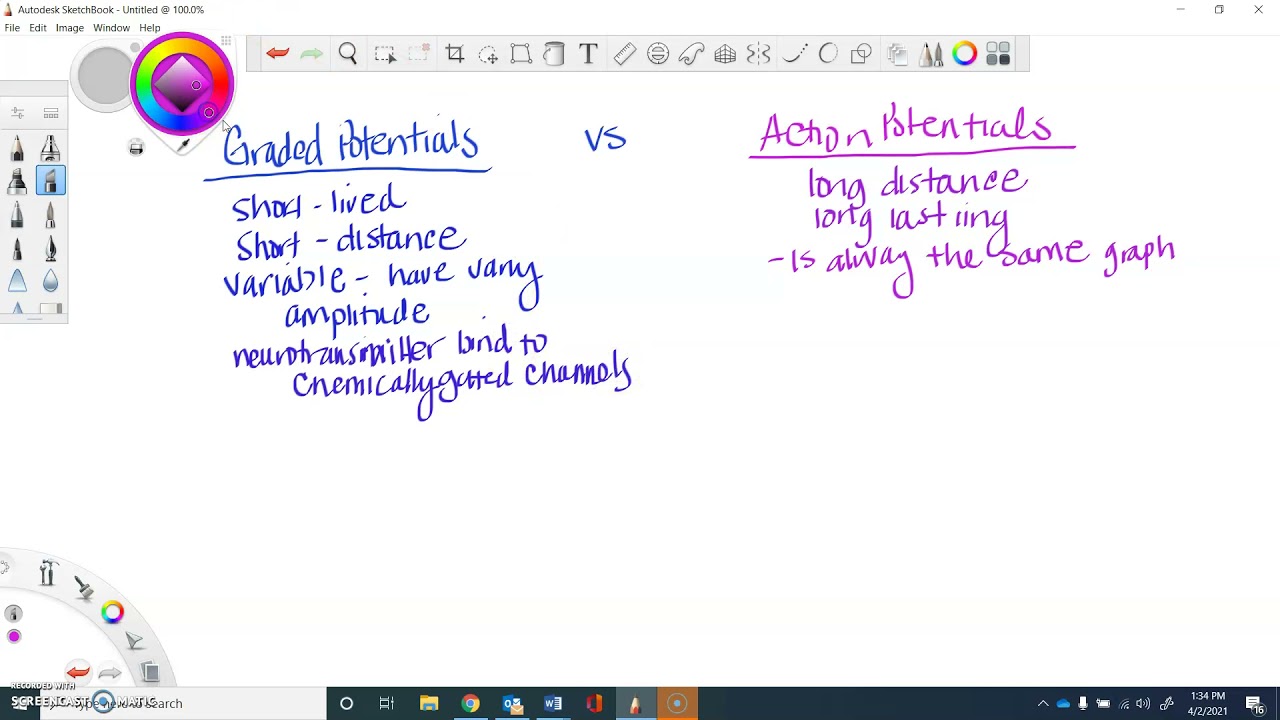 Autodesk SketchBook - Untitled @ 100.0%
File Edit Image Window Help
Graded Potentials vs Action Potentials
short - lived
short - distance
variable - have vary
amplitude
neurotransmitter bind to
chemically gated channels
long distance
long lastiing
- Is alway the same graph
RECORDED WITH
SCREENCAST MATIC
Type here to search
1:34 PM
4/2/2021
16